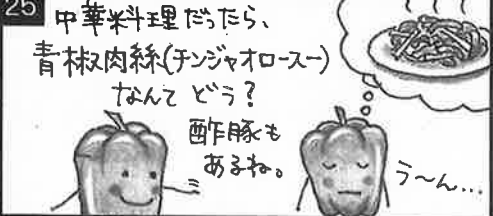 25
中華料理だったら、
青椒肉絲(チンジャオロースー)
なんてどう?
酢豚も
あるね。
う〜ん…